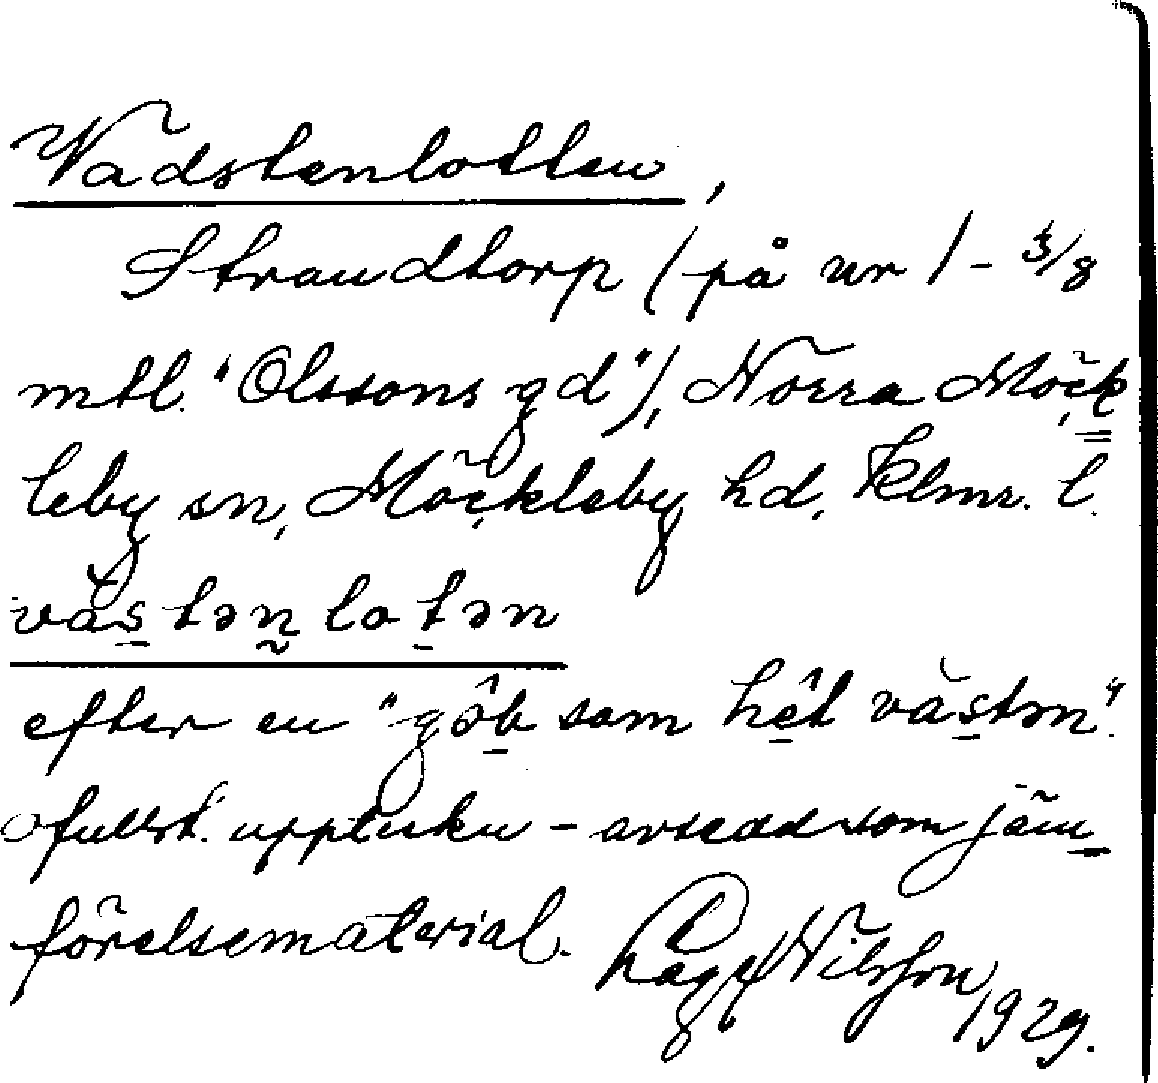 Vadstenlotten,
Strandtorp (på nr 1 - 3/8
mtl. "Olssons gd"), Norra Möck
leby sn, Möckleby hd, Klmr. l.
västən lotən
efter en "gôb som hêt västən".
ofullst. uppteckn - avsedd som jäm
förelsematerial. Nilsson
1929.